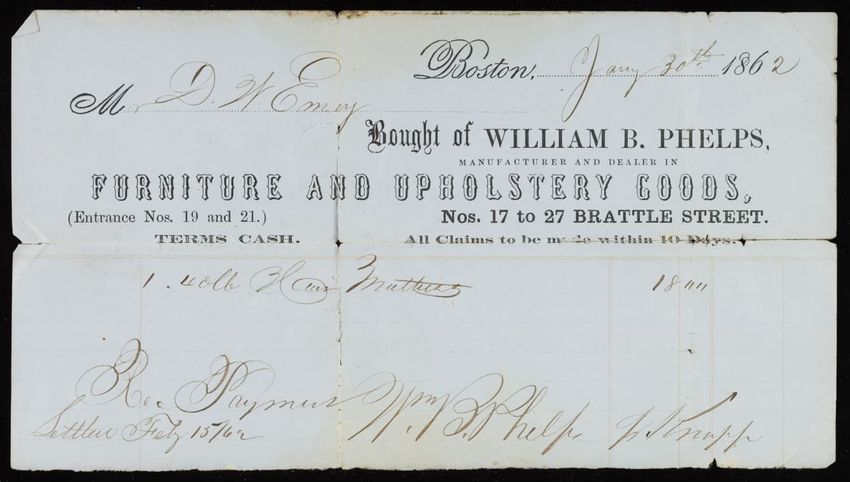 Boston, Jany 30th 1862
Mr D. W. Emery
Bought of WILLIAM B. PHELPS,
MANUFACTURER AND DEALER IN
FURNITURE AND UPHOLSTERY GOODS,
(Entrance Nos. 19 and 21.) Nos. 17 to 27 BRATTLE STREET.
TERMS CASH. All Claims to be made within 10 Days.
1 . 40lb Hair Mattress 18 "
Rec Payment Wm B. Phelps
Settled Feby 15/62 Knapp